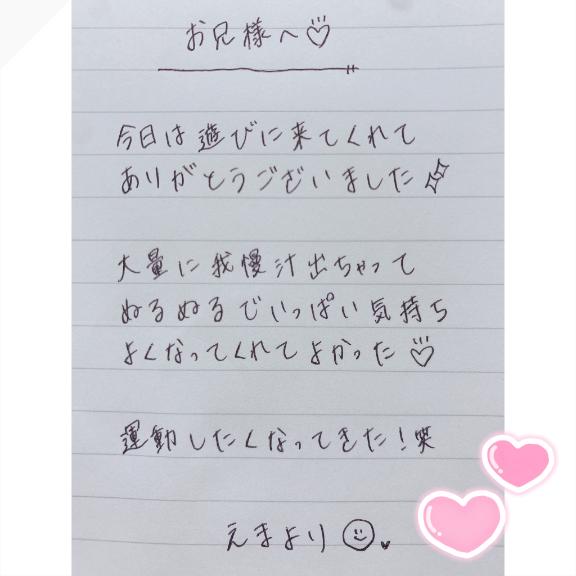 お兄様へ♡
今日は遊びに来てくれて
ありがとうございました
大量に我慢汁出ちゃって
ぬるぬるでいっぱい気持ち
よくなってくれてよかった♡
運動したくなってきた！笑
えまより